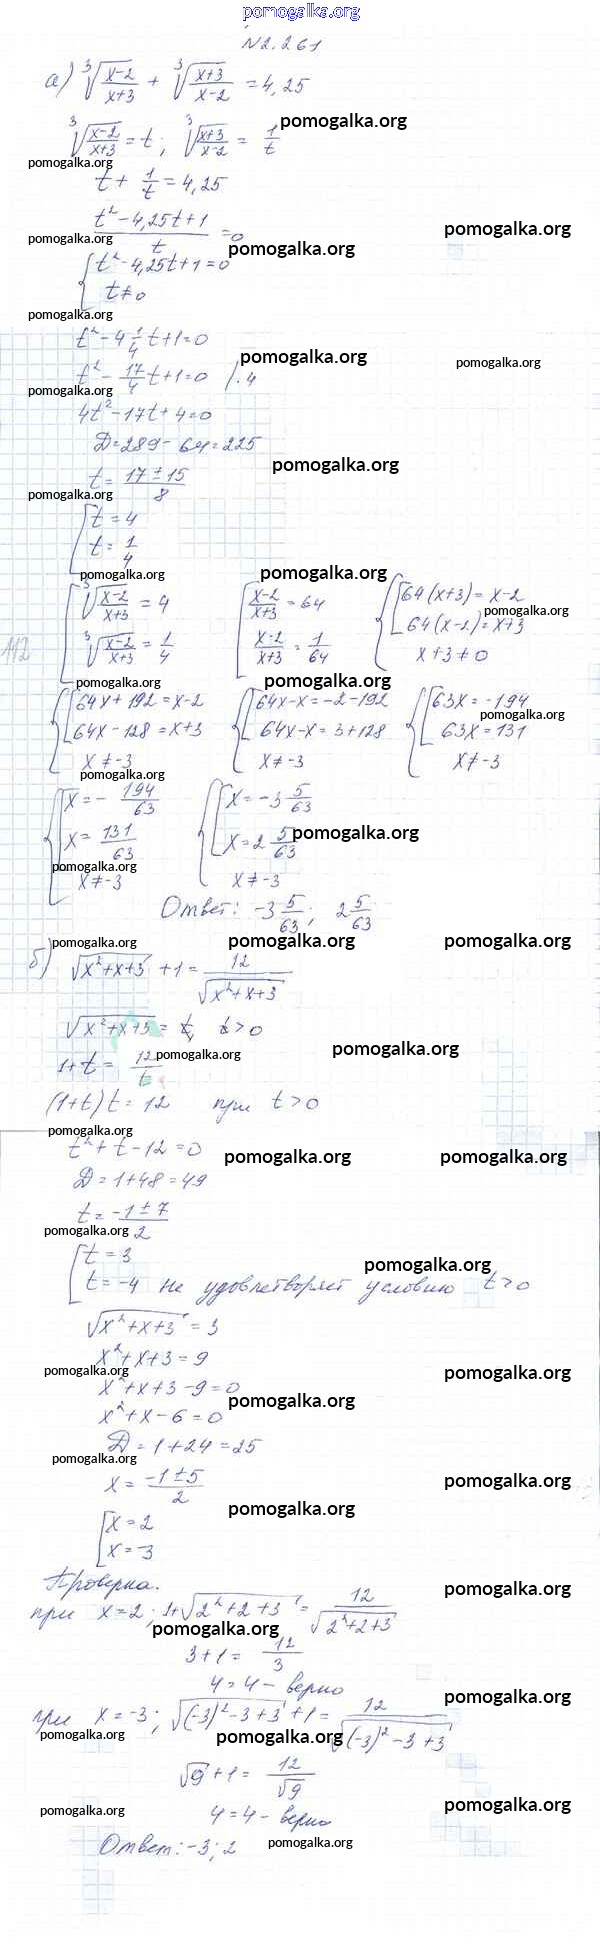 pomogalka.org
N2.261
а) ∛((x-2)/(x+3)) + ∛((x+3)/(x-2)) = 4,25
∛((x-2)/(x+3)) = t; ∛((x+3)/(x-2)) = 1/t
pomogalka.org
pomogalka.org
t + 1/t = 4,25
(t²-4,25t+1)/t = 0
pomogalka.org
pomogalka.org
pomogalka.org
{ t²-4,25t+1=0
t≠0
pomogalka.org
t²-4 1/4 t+1=0
pomogalka.org
pomogalka.org
t²- 17/4 t+1=0 /·4
pomogalka.org
4t²-17t+4=0
D=289-64=225
pomogalka.org
t= (17±15)/8
pomogalka.org
[ t=4
t= 1/4
pomogalka.org
pomogalka.org
[ ∛((x-2)/(x+3)) = 4 [ (x-2)/(x+3) = 64 { [ 64(x+3)=x-2
pomogalka.org
∛((x-2)/(x+3)) = 1/4 (x-2)/(x+3) = 1/64 64(x-2)=x+3
112
x+3≠0
pomogalka.org
pomogalka.org
{ [ 64x+192=x-2 { [ 64x-x=-2-192 { [ 63x=-194
pomogalka.org
64x-128=x+3 64x-x=3+128 63x=131
x≠-3 x≠-3 x≠-3
pomogalka.org
{ [ x=- 194/63 { [ x=-3 5/63
x= 131/63 x=2 5/63
pomogalka.org
pomogalka.org
x≠-3 x≠-3
Ответ: -3 5/63; 2 5/63
pomogalka.org
pomogalka.org
pomogalka.org
б) √(x²+x+3) +1= 12/√(x²+x+3)
√(x²+x+3) = t, t>0
pomogalka.org
pomogalka.org
1+t= 12/t
(1+t)t=12 при t>0
pomogalka.org
t²+t-12=0
pomogalka.org
pomogalka.org
D=1+48=49
t= (-1±7)/2
pomogalka.org
[ t=3
pomogalka.org
t=-4 не удовлетворяет условию t>0
√(x²+x+3) = 3
x²+x+3=9
pomogalka.org
pomogalka.org
x²+x+3-9=0
pomogalka.org
x²+x-6=0
D=1+24=25
pomogalka.org
pomogalka.org
x= (-1±5)/2
pomogalka.org
[ x=2
x=-3
Проверка.
pomogalka.org
при x=2; 1+√(2²+2+3) = 12/√(2²+2+3)
pomogalka.org
3+1= 12/3
4=4 - верно
pomogalka.org
при x=-3; √((-3)²-3+3) +1= 12/√((-3)²-3+3)
pomogalka.org
pomogalka.org
√9+1= 12/√9
pomogalka.org
pomogalka.org
4=4 - верно
Ответ: -3; 2
pomogalka.org